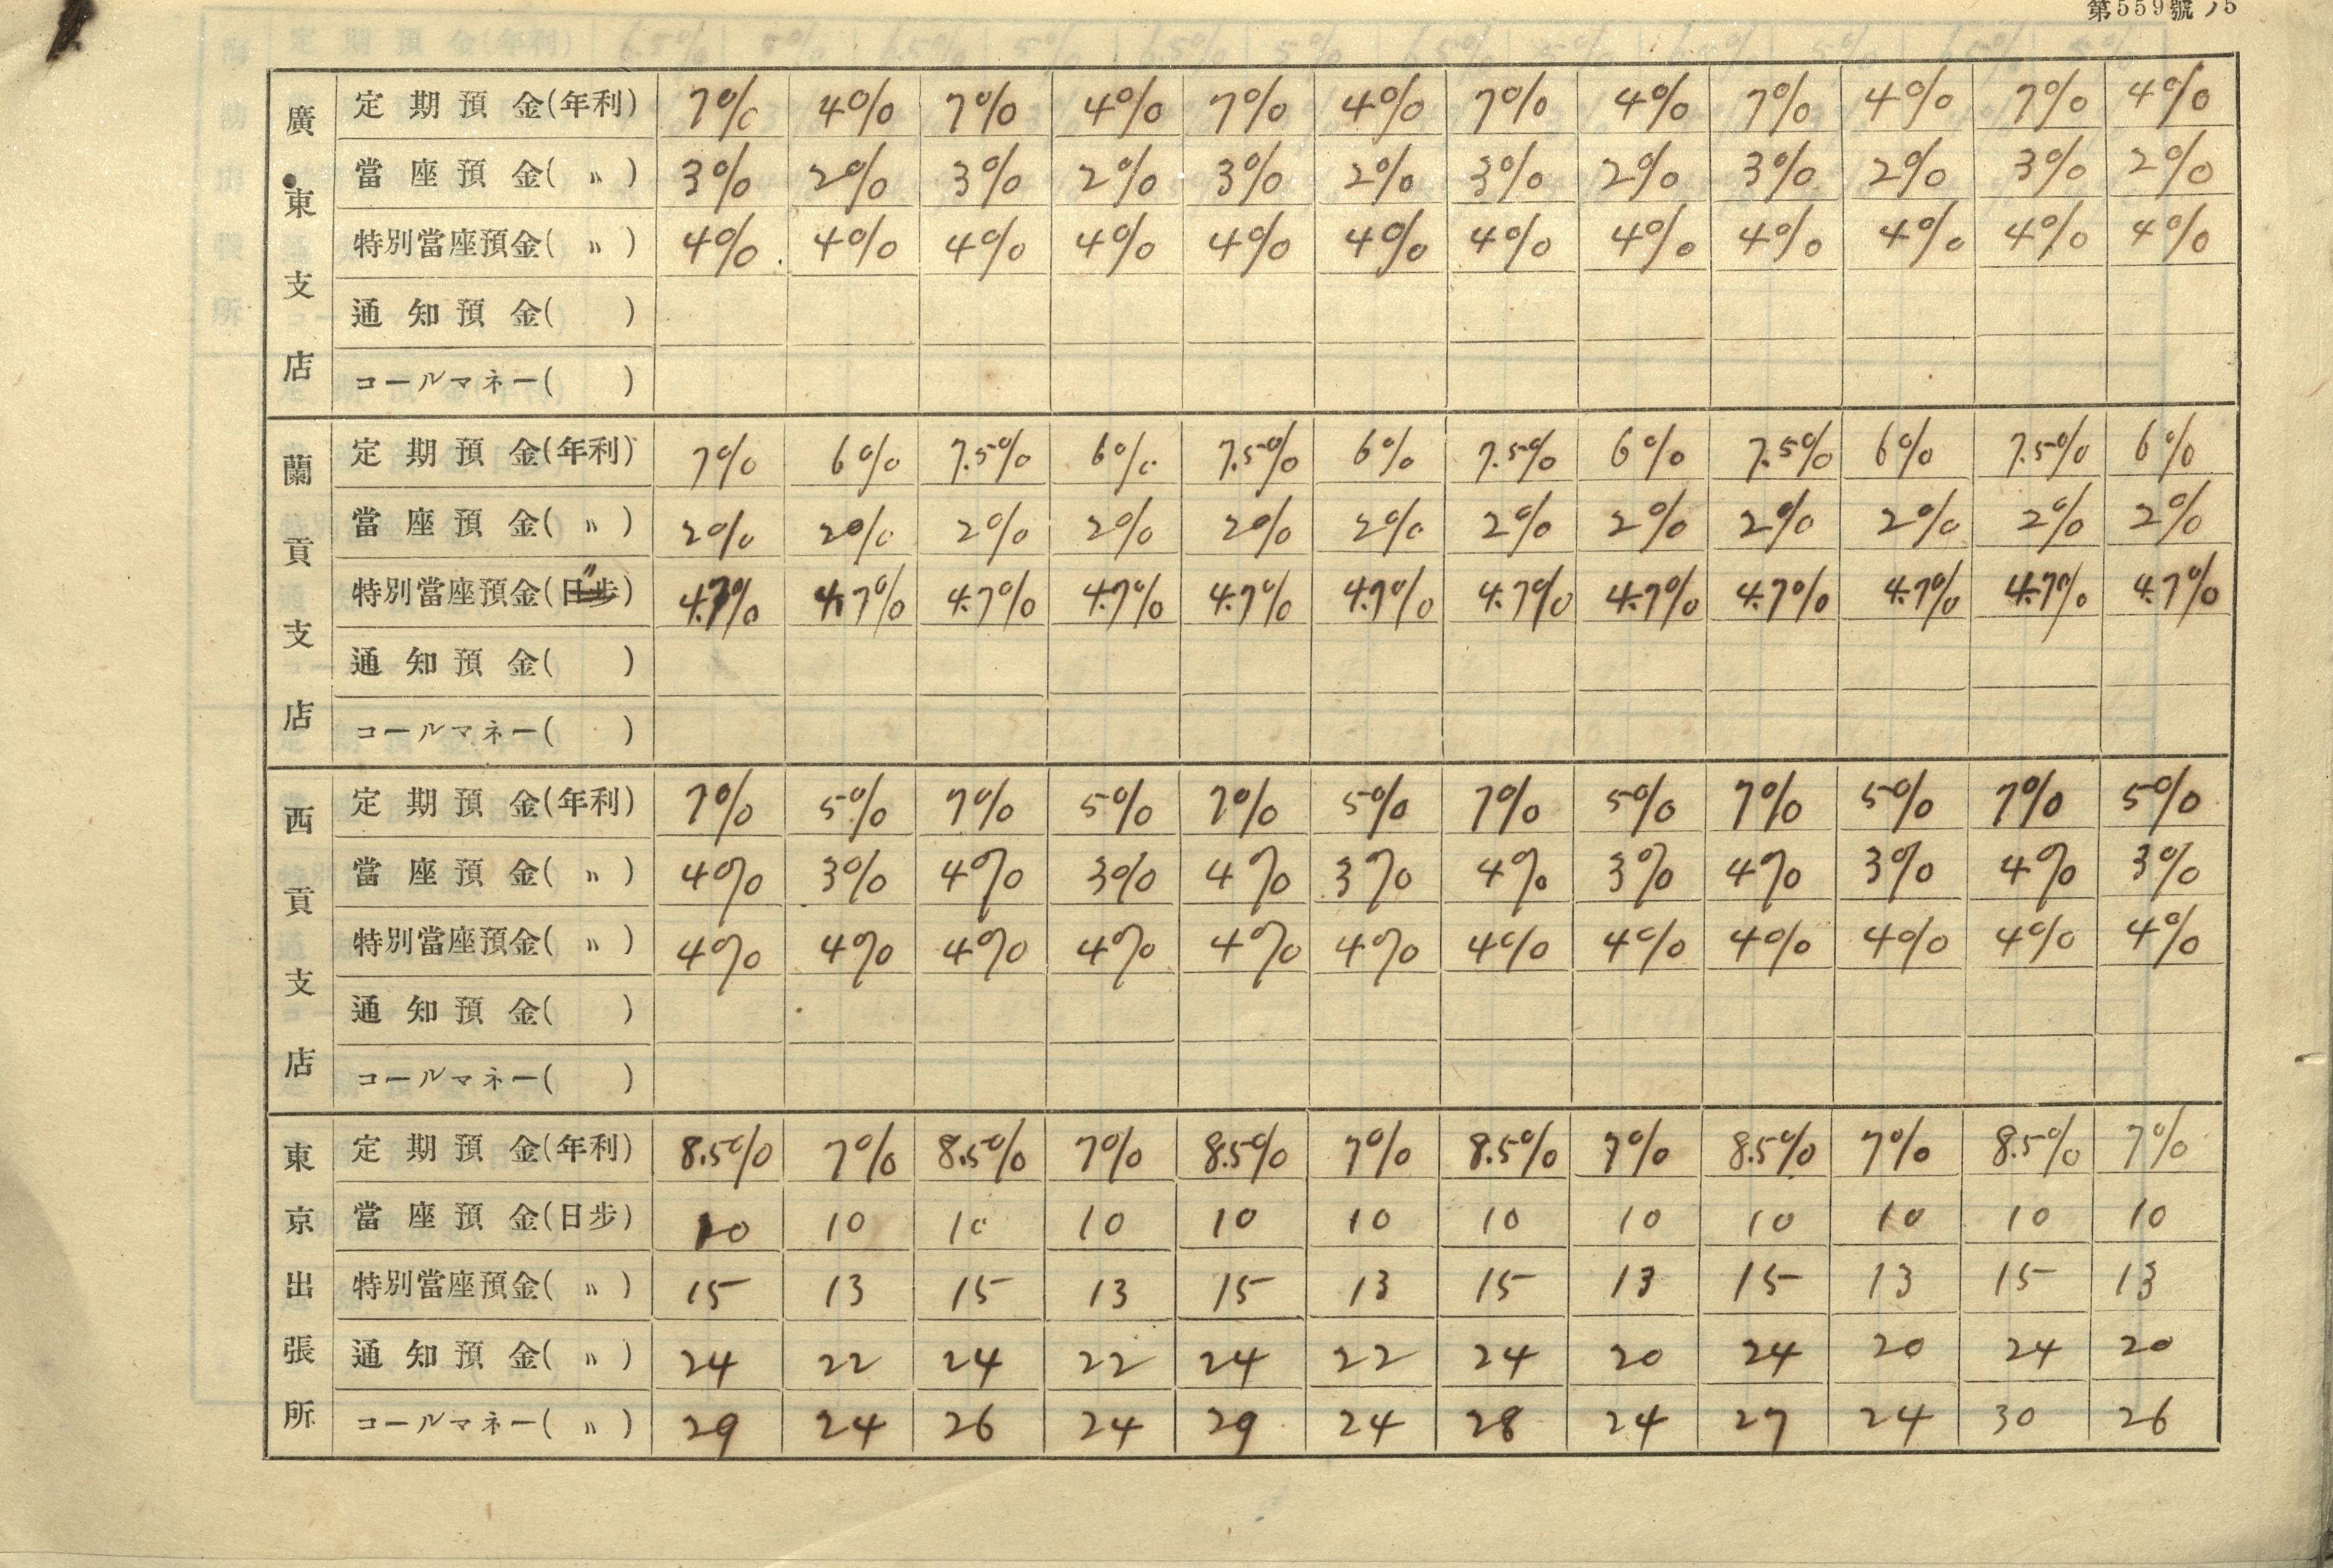 第559號ノ5
廣東支店
定期預金(年利) 7% 4% 7% 4% 7% 4% 7% 4% 7% 4% 7% 4%
當座預金(〃) 3% 2% 3% 2% 3% 2% 3% 2% 3% 2% 3% 2%
特別當座預金(〃) 4% 4% 4% 4% 4% 4% 4% 4% 4% 4% 4% 4%
通知預金( )
コールマネー( )
蘭貢支店
定期預金(年利) 7% 6% 7.5% 6% 7.5% 6% 7.5% 6% 7.5% 6% 7.5% 6%
當座預金(〃) 2% 2% 2% 2% 2% 2% 2% 2% 2% 2% 2% 2%
特別當座預金(日步) 〃 4.7% 4.7% 4.7% 4.7% 4.7% 4.7% 4.7% 4.7% 4.7% 4.7% 4.7% 4.7%
通知預金( )
コールマネー( )
西貢支店
定期預金(年利) 7% 5% 7% 5% 7% 5% 7% 5% 7% 5% 7% 5%
當座預金(〃) 4% 3% 4% 3% 4% 3% 4% 3% 4% 3% 4% 3%
特別當座預金(〃) 4% 4% 4% 4% 4% 4% 4% 4% 4% 4% 4% 4%
通知預金( )
コールマネー( )
東京出張所
定期預金(年利) 8.5% 7% 8.5% 7% 8.5% 7% 8.5% 7% 8.5% 7% 8.5% 7%
當座預金(日步) 10 10 10 10 10 10 10 10 10 10 10 10
特別當座預金(〃) 15 13 15 13 15 13 15 13 15 13 15 13
通知預金(〃) 24 22 24 22 24 22 24 20 24 20 24 20
コールマネー(〃) 29 24 26 24 29 24 28 24 27 24 30 26